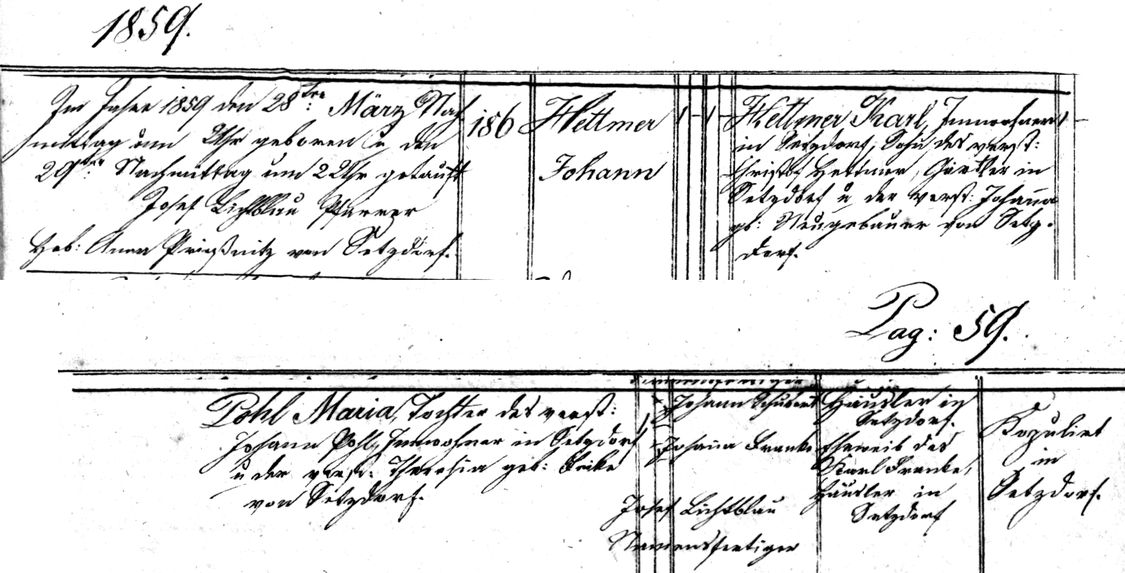 1859.
Im Jahre 1859 den 28ten März Nach
mittag um Uhr geboren u. den
29ten Nachmittag um 2 Uhr getauft
Josef Lichtblau Pfarrer
Heb: Anna Prießnitz von Setzdorf.
186
Hettmer
Johann
1
1
Hettmer Karl, Innwohner
in Setzdorf, Sohn des verst:
Christof Hettmer, Gärtler in
Setzdorf u. der verst: Johanna
gb: Neugebauer von Setz-
dorf.
1
Pag: 59.
Pohl Maria, Tochter des verst:
Johann Pohl, Innwohner in Setzdorf
u. der verst. Theresia geb:
von Setzdorf.
1
Johann Schubert
Johanna Franke
Josef Lichtblau
Namensfertiger
Häusler in
Setzdorf.
Eheweib des
Karl Franke,
Häusler in
Setzdorf
Kopulirt
in
Setzdorf.